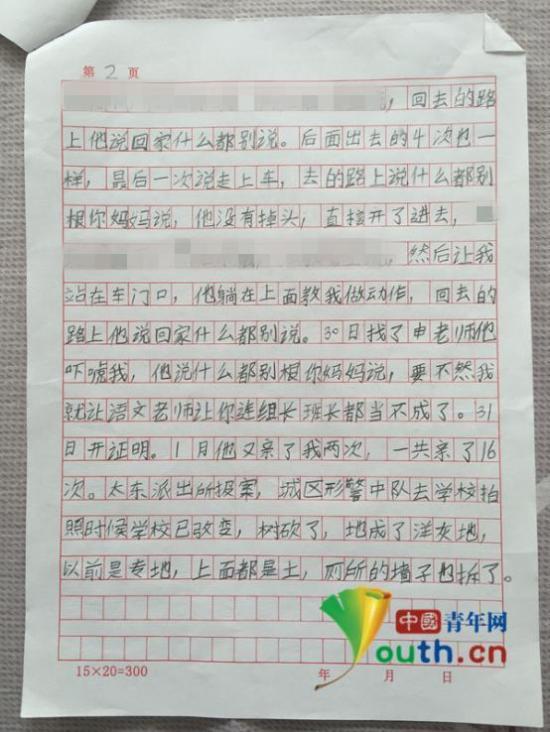 第2页
，回去的路
上他说回家什么都别说。后面出去的4次也一
样，最后一次说走上车，去的路上说什么都别
根你妈妈说，他没有掉头，直接开了进去，
，然后让我
站在车门口，他躺在上面教我做动作，回去的
路上他说回家什么都别说。30日找了申老师他
吓唬我，他说什么都别根你妈妈说，要不然我
就让语文老师让你连组长班长都当不成了。31
日开证明。1月他又亲了我两次，一共亲了16
次。太东派出所报案，城区形警中队去学校拍
照时候学校已改变，树砍了，地成了洋灰地，
以前是专地，上面都是土，厕所的墙子也拆了。
15×20=300
年 月 日
中國青年网
youth.cn